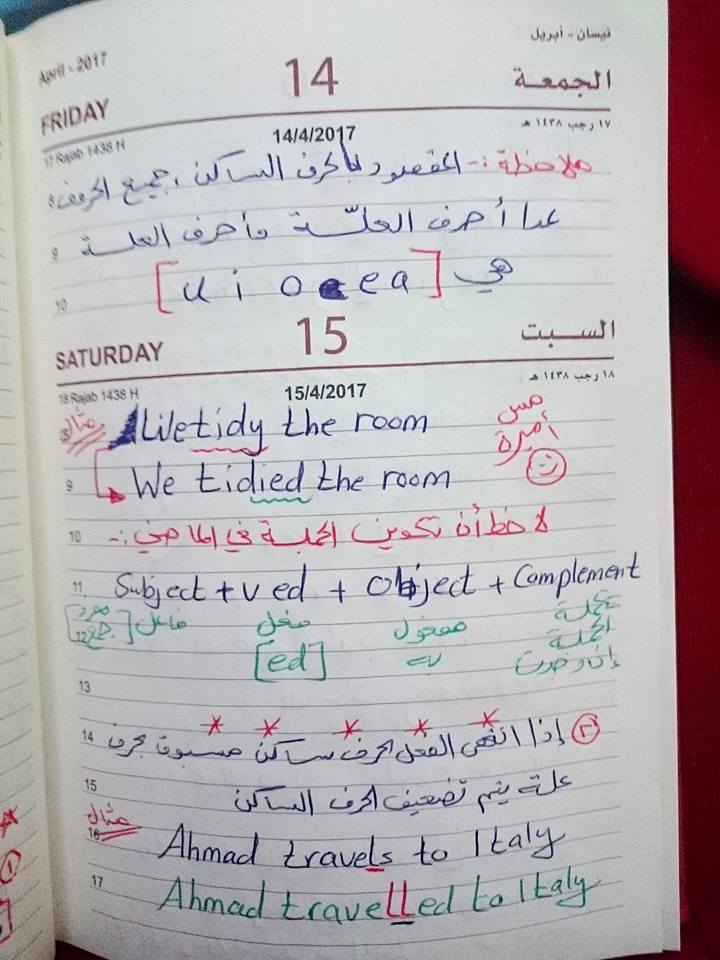 نيسان - أبريل
April - 2017
14
الجمعة
FRIDAY
١٧ رجب ١٤٣٨ هـ
17 Rajab 1438 H
14/4/2017
ملاحظة :- المقصود بالحرف الساكن ، جميع الحروف
8
عدا أحرف العلّة وأحرف العلة
9
هي [u i o e a]
10
15
السبت
SATURDAY
١٨ رجب ١٤٣٨ هـ
18 Rajab 1438 H
15/4/2017
مثال
8
We tidy the room
مس
أميرة
9
We tidied the room
10
لاحظ أن تكوين الجملة في الماضي :-
11
Subject + v ed + object + Complement
فاعل [مفرد جمع]
فعل
مفعول
تكملة
12
[ed]
به
الجملة
إن وجدت
13
14
٢ إذا انتهى الفعل بحرف ساكن مسبوق بحرف
15
علة يتم تضعيف الحرف الساكن
مثال
16
Ahmad travels to Italy
17
Ahmad travelled to Italy
١